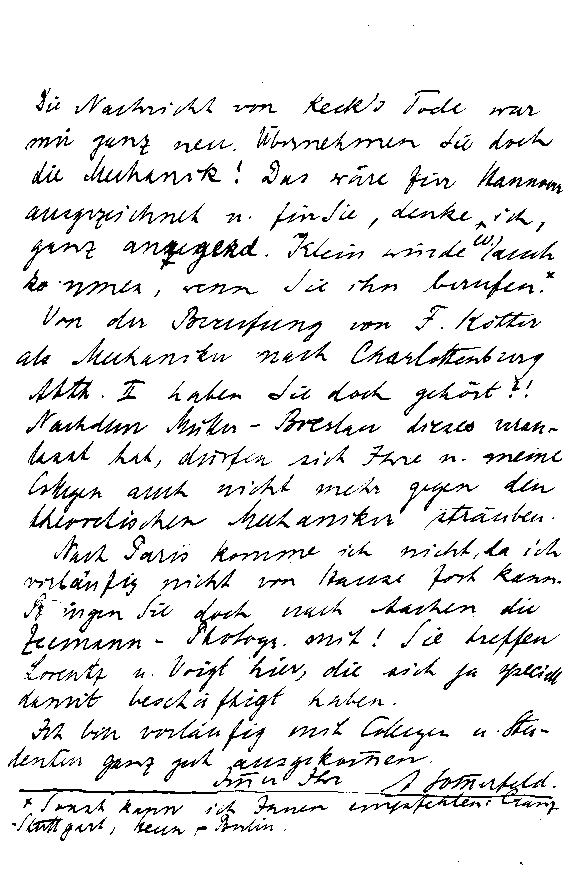 Die Nachricht von Keck's Tode war
mir ganz neu. Übernehmen Sie doch
die Mechanik! Das wäre für Hannover
ausgezeichnet u. für Sie, denke ich,
ganz angezend. Klein würde auch
kommen, wenn Sie ihn berufen.*
Von der Berufung von F. Kötter
als Mechaniker nach Charlottenburg
Abth. II haben Sie doch gehört?!
Nachdem Müller-Breslau dieses veran-
lasst hat, dürfen sich Ihre u. meine
Collegen auch nicht mehr gegen den
theoretischen Mechaniker sträuben.
Nach Paris komme ich nicht, da ich
vorläufig nicht von Hause fort kann.
Bringen Sie doch nach Aachen die
Zeemann-Photogr. mit! Sie treffen
Lorentz u. Voigt hier, die sich ja speciell
damit beschäftigt haben.
Ich bin vorläufig mit Collegen u. Stu-
denten ganz gut ausgekom̄en.
Im̄er Ihr A Som̄erfeld.
* Sonst kann ich Ihnen empfehlen: Cranz
-Stuttgart, Heun-Berlin.